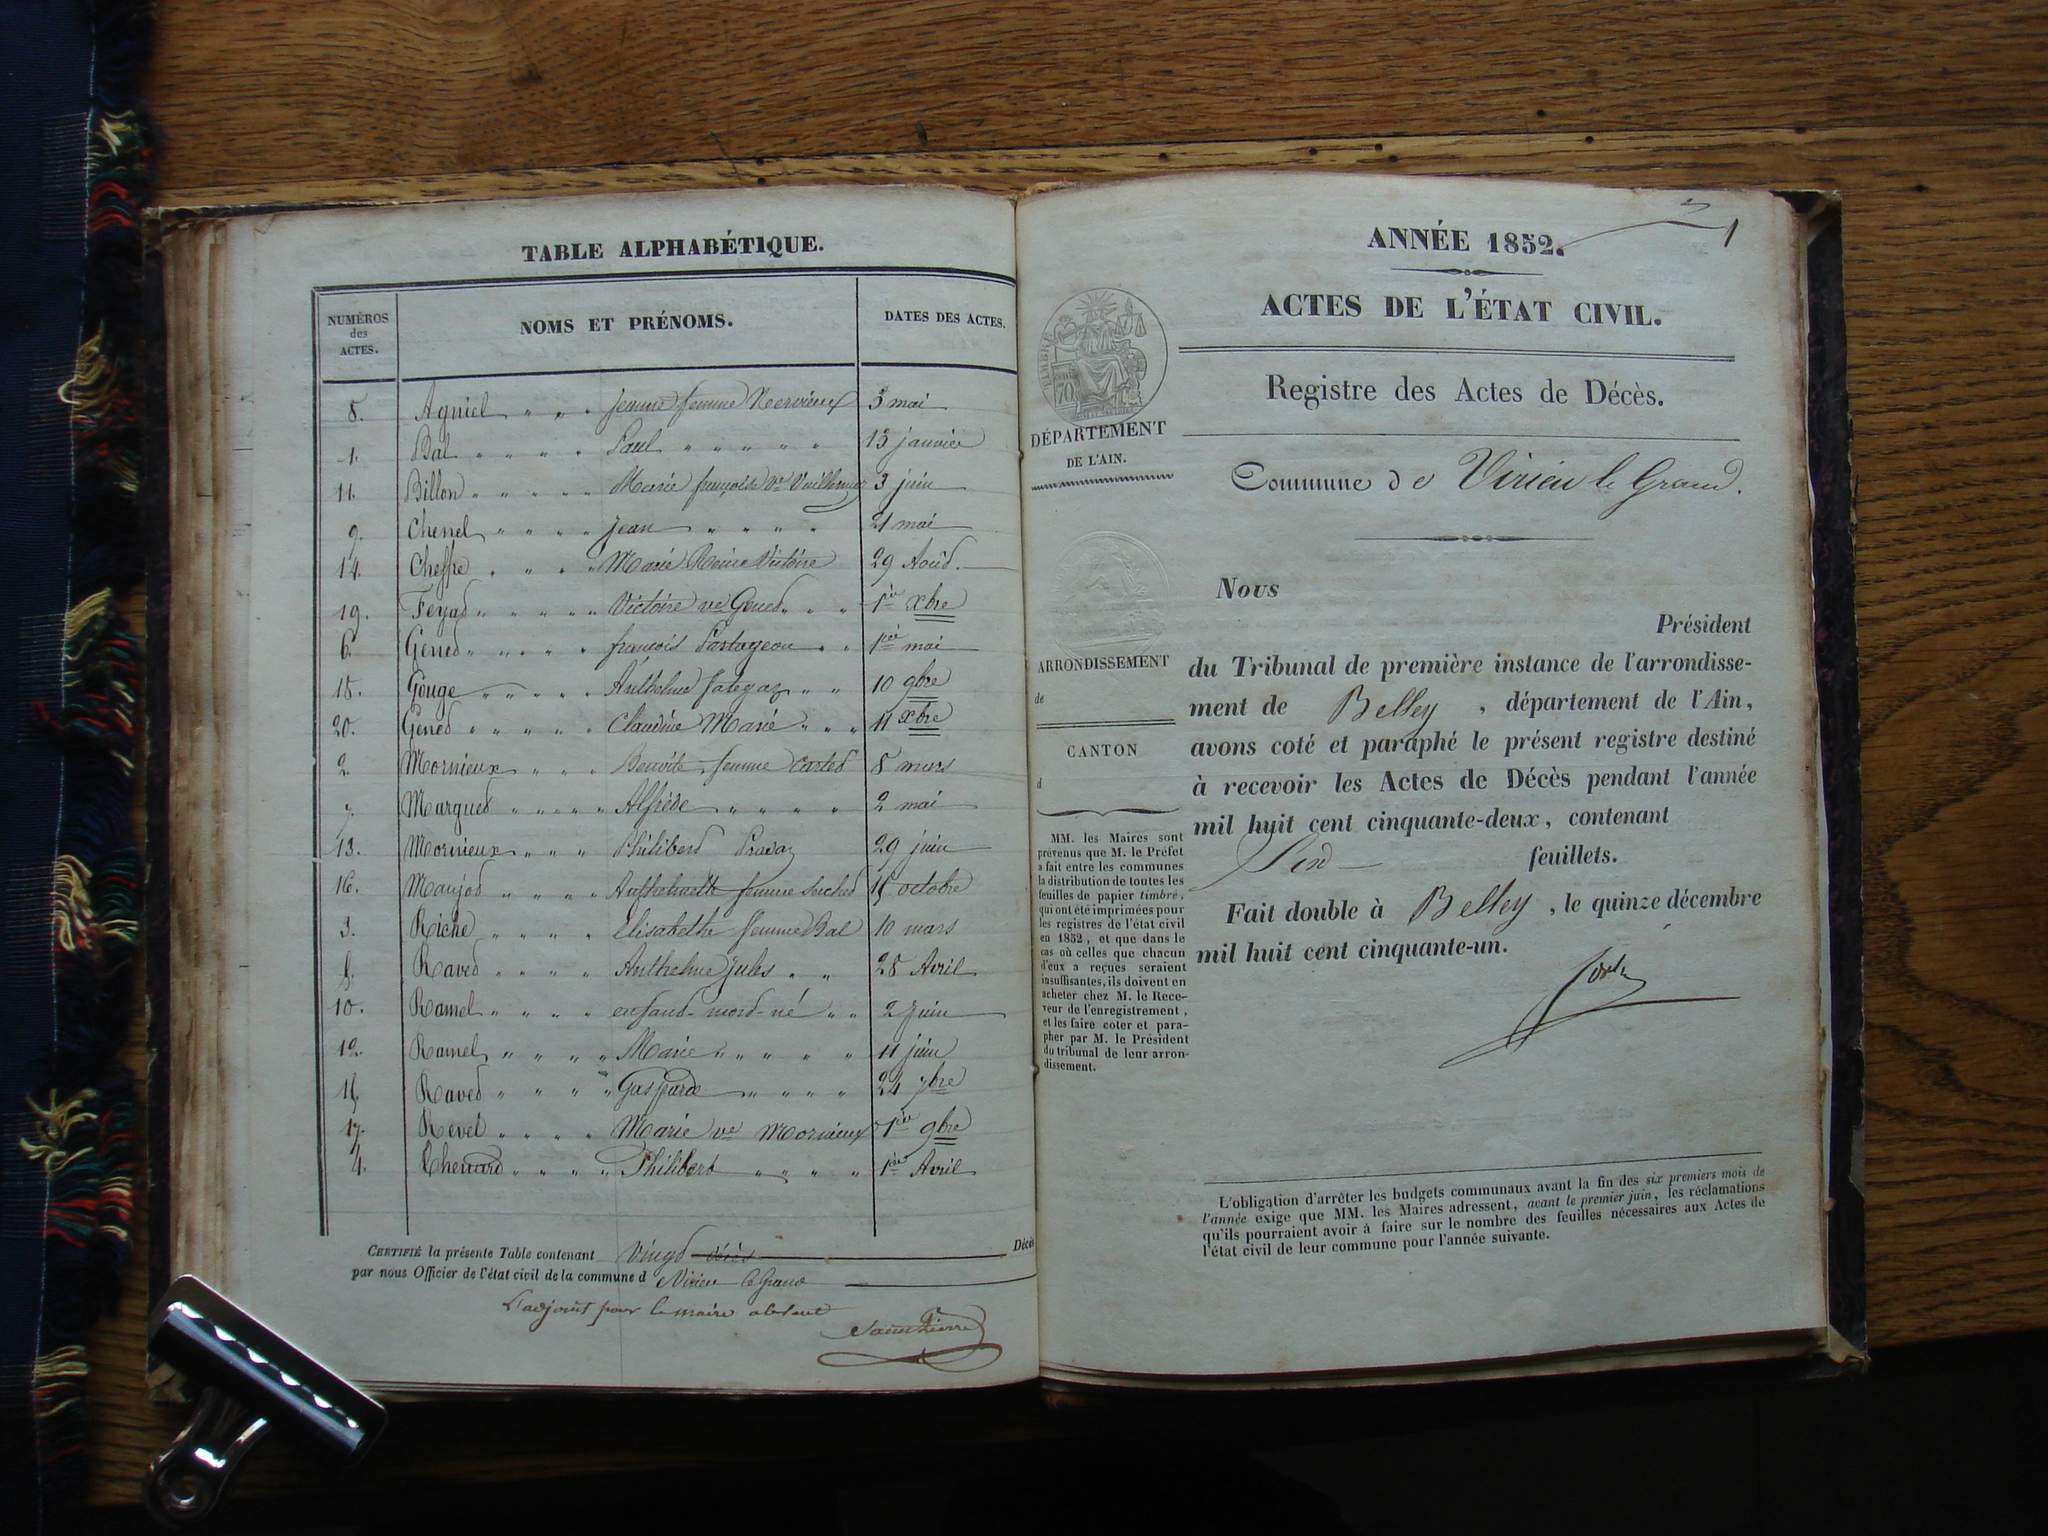 TABLE ALPHABÉTIQUE.
NUMÉROS
des
ACTES.
NOMS ET PRÉNOMS.
DATES DES ACTES.
8. Agniel " " " jeanne femme Mervieux 3 mai
1. Bal " " " " Paul " " " " " 13 janvier
11. Billon " " " " " Marie françoise ve Vuillermoz 3 juin
9. Chenel " " " " jean " " " " 21 mai
14. Cheffre " " " " Marie Reine Victoire 29 Aoùd.
19. Feyad " " " " " Victoire ve Gened " " " 1er xbre
6. Gened " " " " françois " " 1er mai
18. Gouge " " " " Anthelme " " 10 9bre
20. Gened " " " " " Claudine Marie " " " 11 xbre
2. Mornieux " " " Benoite femme 8 mars
7. Margued " " " " " Alfréde " " " " 2 mai
13. Mornieux " " " Philiberd Pravaz 29 juin
16. Maujod " " " " femme 15 octobre
3. Riche " " " " Elisabethe femme Bal 10 mars
5. Raved " " " " Anthelme Jules " " 28 Avril
10. Ramel " " " " enfand-mord-né " " 2 juin
12. Ramel " " " " Marie " " " " " 11 juin
15. Raved " " " " Gasparde " " " " 24 7bre
17. Revel " " " " Marie ve Mornieux 1er 9bre
4. " " " " Philiberd " " " " 1er Avril
CERTIFIÉ la présente Table contenant vingd décès Décès
par nous Officier de l'état civil de la commune d Virieu le Grand
L'adjoint pour le maire absent
Saint Pierre
1
ANNÉE 1852.
ACTES DE L'ÉTAT CIVIL.
Registre des Actes de Décès.
TIMBRE
70
DÉPARTEMENT
DE L'AIN.
Commune de Virieu le Grand.
ARRONDISSEMENT
de
CANTON
d
MM. les Maires sont
prévenus que M. le Préfet
a fait entre les communes
la distribution de toutes les
feuilles de papier timbré,
qui ont été imprimées pour
les registres de l'état civil
en 1852, et que dans le
cas où celles que chacun
d'eux a reçues seraient
insuffisantes, ils doivent en
acheter chez M. le Rece-
veur de l'enregistrement,
et les faire coter et para-
pher par M. le Président
du tribunal de leur arron-
dissement.
Nous
Président
du Tribunal de première instance de l'arrondisse-
ment de Belley, département de l'Ain,
avons coté et paraphé le présent registre destiné
à recevoir les Actes de Décès pendant l'année
mil huit cent cinquante-deux, contenant
feuillets.
Fait double à Belley, le quinze décembre
mil huit cent cinquante-un.
L'obligation d'arrêter les budgets communaux avant la fin des six premiers mois de
l'année exige que MM. les Maires adressent, avant le premier juin, les réclamations
qu'ils pourraient avoir à faire sur le nombre des feuilles nécessaires aux Actes de
l'état civil de leur commune pour l'année suivante.